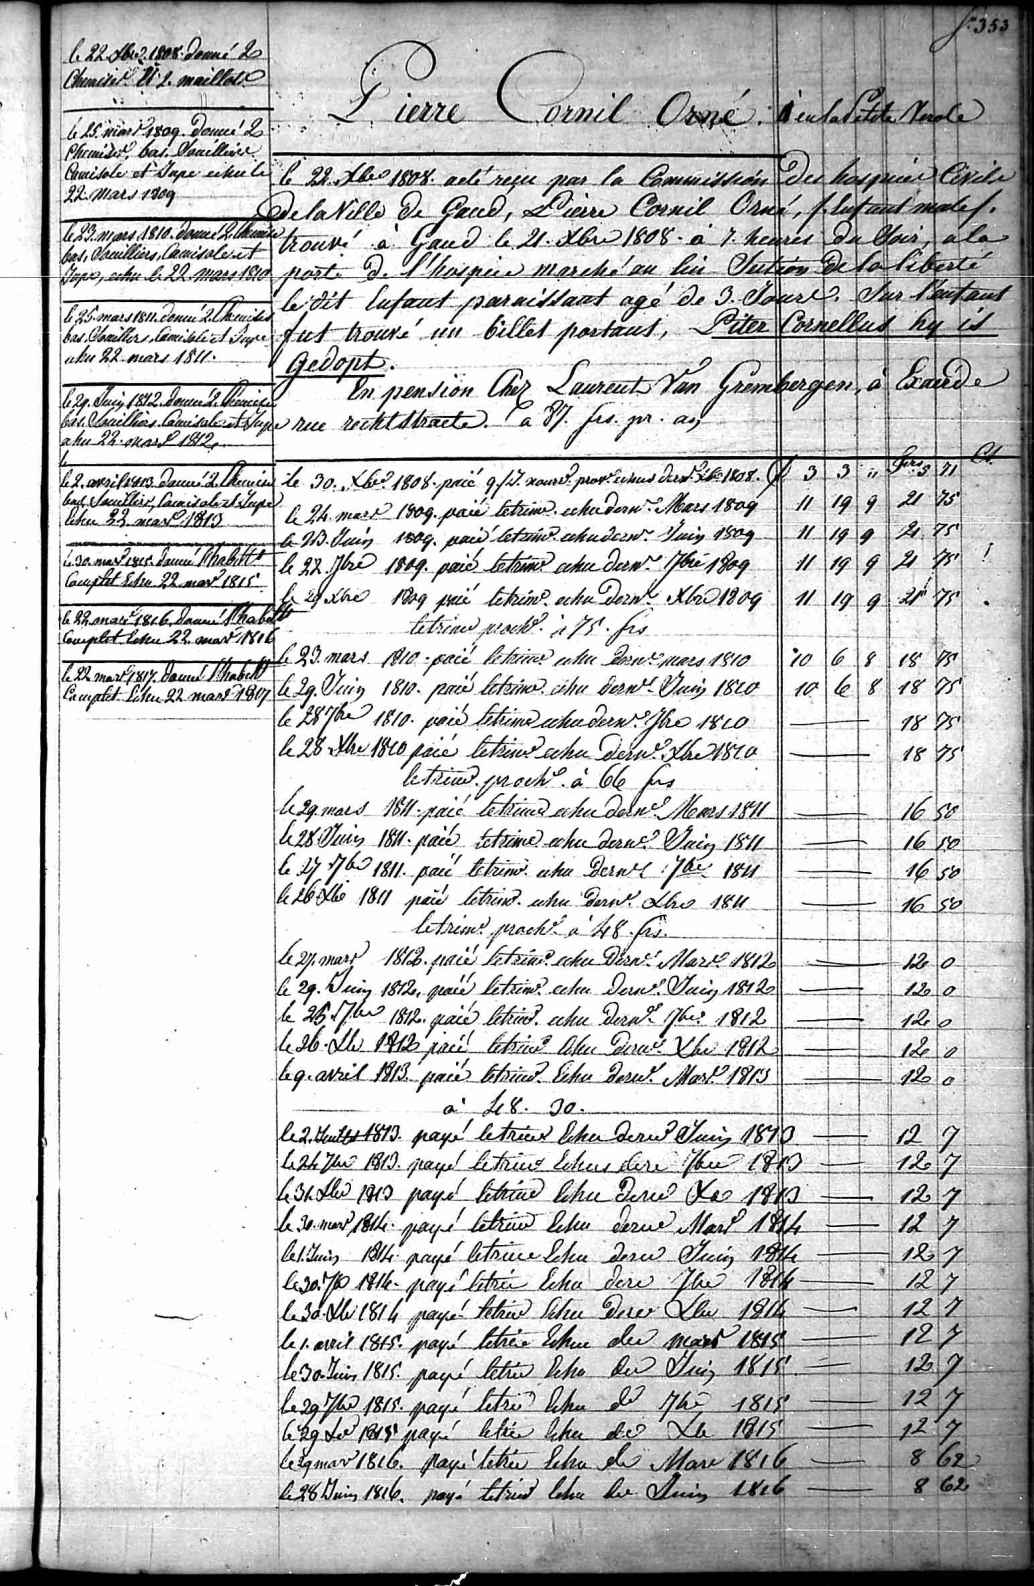 f. 353
le 22 Xbre 1808. donné 2
Chemises et 2. maillots
le 25. mars 1809. donné 2
Chemises, bas, Souilliers
Camisole et Jupe echu le
22 Mars 1809
le 23. mars 1810. donné 2. Chemises
bas, Souilliers, Camisole et
Jupe, echu le 22. mars 1810
le 25. mars 1811. donné 2. Chemises
bas, Souilliers, Camisole et Jupe
echu 22 mars 1811.
le 29. Juin 1812. donné 2. Chemises
bas, Souilliers, Camisole et Jupe
echu 22. mars 1812.
le 2. avril 1813. donné 2. Chemises
bas, Souilliers, Camisole et Jupe
Echu 22. mars 1813
le 30. mars 1815. donné l'habillt
Complet Echu 22 mars 1815
le 22 mars 1816. donné l'habillt
Complet Echu 22 mars 1816
le 22 mars 1817. donné l'habillt
Complet Echu 22 mars 1817
Pierre Cornil Orné. à eu la Petite Verole
le 22. Xbre 1808. a été reçu par la Commission des hospices Civils
de la Ville de Gand, Pierre Cornil Orné, f. Enfant male f.
trouvé à Gand le 21. Xbre 1808. à 7. heures du Soir, a la
porte de l'hospice marché au lin Section de la liberté
le dit Enfant paroissant agé de 3. Jours. Sur l'Enfant
fut trouvé un billet portant, Piter Cornellus hy is
gedopt.
En pension Chez Laurent Van Grembergen, à Exaerde
rue rechtstraete. à 87. frs. pr. an
frs Ct.
le 30. Xbre 1808. paié 9/J. nourr. prov. echus dern. Xbre 1808. £ 3 3 " 5 71
le 24. mars 1809. paié letrim. echu dern. Mars 1809 11 19 9 21 75
le 23. Juin 1809. paié letrim. echu dern. Juin 1809 11 19 9 21 75
le 22 7bre 1809. paié letrim. echu dern. 7bre 1809 11 19 9 21 75
le 29 Xbre 1809 paié letrim. echu dern. Xbre 1809 11 19 9 21 75
letrim. proch. à 75. frs
le 23. mars 1810. paié letrim. echu dern. mars 1810 10 6 8 18 75
le 29. Juin 1810. paié letrim. echu dern. Juin 1810 10 6 8 18 75
le 28 7bre 1810. paié letrim. echu dern. 7bre 1810 — 18 75
le 28 Xbre 1810 paié letrim. echu dern. Xbre 1810 — 18 75
letrim. proch. à 66 frs
le 29. mars 1811. paié letrim. echu dern. Mars 1811 — 16 50
le 28 Juin 1811. paié letrim. echu dern. Juin 1811 — 16 50
le 27 7bre 1811. paié letrim. echu Dern. 7bre 1811 — 16 50
le 26 Xbre 1811 paié letrim. echu dern. Xbre 1811 — 16 50
letrim. proch. à 48. frs.
le 27. mars 1812. paié letrim. echu Dern. Mars. 1812 — 12 0
le 29. Juin 1812. paié letrim. echu dern. Juin 1812 — 12 0
le 25 7bre 1812. paié letrim. echu dern. 7bre 1812 — 12 0
le 26. Xbre 1812 paié letrim. echu dern. Xbre 1812 — 12 0
le 9. avril 1813. paié letrim. Echu dern. Mars. 1813 — 12 0
à 48. 30.
le 2. Juillet 1813. payé letrim Echu dern Juin 1813 — 12 7
le 24 7bre 1813. payé letrim Echu dern 7bre 1813 — 12 7
le 31. Xbre 1813 payé letrim Echu dern Xbre 1813 — 12 7
le 30. mars 1814. payé letrim Echu dern Mars 1814 — 12 7
le 1. Juin 1814. payé letrim Echu dern Juin 1814 — 12 7
le 30. 7bre 1814. payé letrim Echu dern 7bre 1814 — 12 7
le 30. Xbre 1814 payé letrim Echu dern Xbre 1814 — 12 7
le 1. avril 1815. payé letrim Echu der mars 1815 — 12 7
le 30. Juin 1815. payé letrim Echu der Juin 1815 — 12 7
le 29 7bre 1815. payé letrim Echu de 7bre 1815 — 12 7
le 29 Xbre 1815 payé letrim Echu der Xbre 1815 — 12 7
le 29 mars 1816. payé letrim Echu de Mars 1816 — 8 62
le 28 Juin 1816. payé letrim Echu der Juin 1816 — 8 62